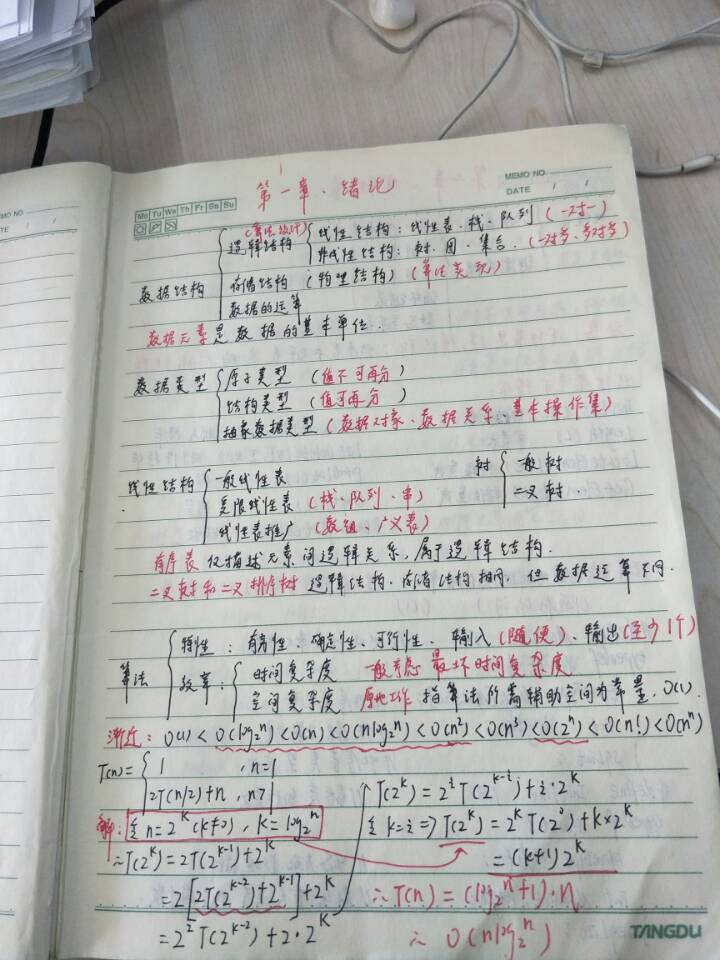 MEMO NO.
DATE / /
Mo Tu We Th Fr Sa Su
第一章、绪论
(算法设计)
数据结构 { 逻辑结构 { 线性结构：线性表、栈、队列 (一对一)
非线性结构：树、图、集合、(一对多、多对多)
存储结构 (物理结构) (算法实现)
数据的运算
数据元素是数据的基本单位.
数据类型 { 原子类型 (值不可再分)
结构类型 (值可再分)
抽象数据类型 (数据对象、数据关系、基本操作集)
线性结构 { 一般线性表
受限线性表 (栈、队列、串)
线性表推广 (数组、广义表)
树 { 一般树
二叉树
有序表仅描述元素间逻辑关系，属于逻辑结构.
二叉树和二叉排序树逻辑结构、存储结构相同，但数据运算不同.
算法 { 特性：有穷性、确定性、可行性、输入(随便)、输出(至少1个)
效率：{ 时间复杂度 一般考虑最坏时间复杂度
空间复杂度 原地工作指算法所需辅助空间为常量，O(1)
渐近：O(1)<O(log₂ⁿ)<O(n)<O(nlog₂ⁿ)<O(n²)<O(n³)<O(2ⁿ)<O(n!)<O(nⁿ)
T(n)= { 1 , n=1
2T(n/2)+n , n>1
解：令 n=2^k (k≠0) , k=log₂ⁿ
∴T(2^k)=2T(2^{k-1})+2^k
=2[2T(2^{k-2})+2^{k-1}]+2^k
=2²T(2^{k-2})+2·2^k
T(2^k)=2^i T(2^{k-i})+i·2^k
令 k=i ⇒ T(2^k)=2^k T(2⁰)+k×2^k
=(k+1)2^k
∴T(n)=(log₂ⁿ+1)·n
∴ O(nlog₂ⁿ)
TANGDU